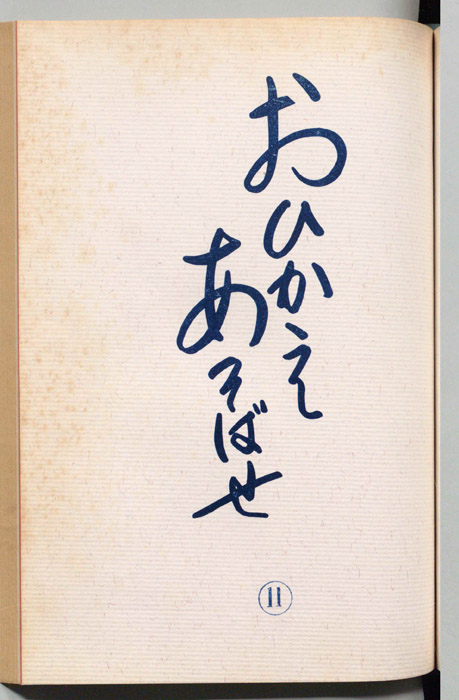 おひかえ
あそばせ
11